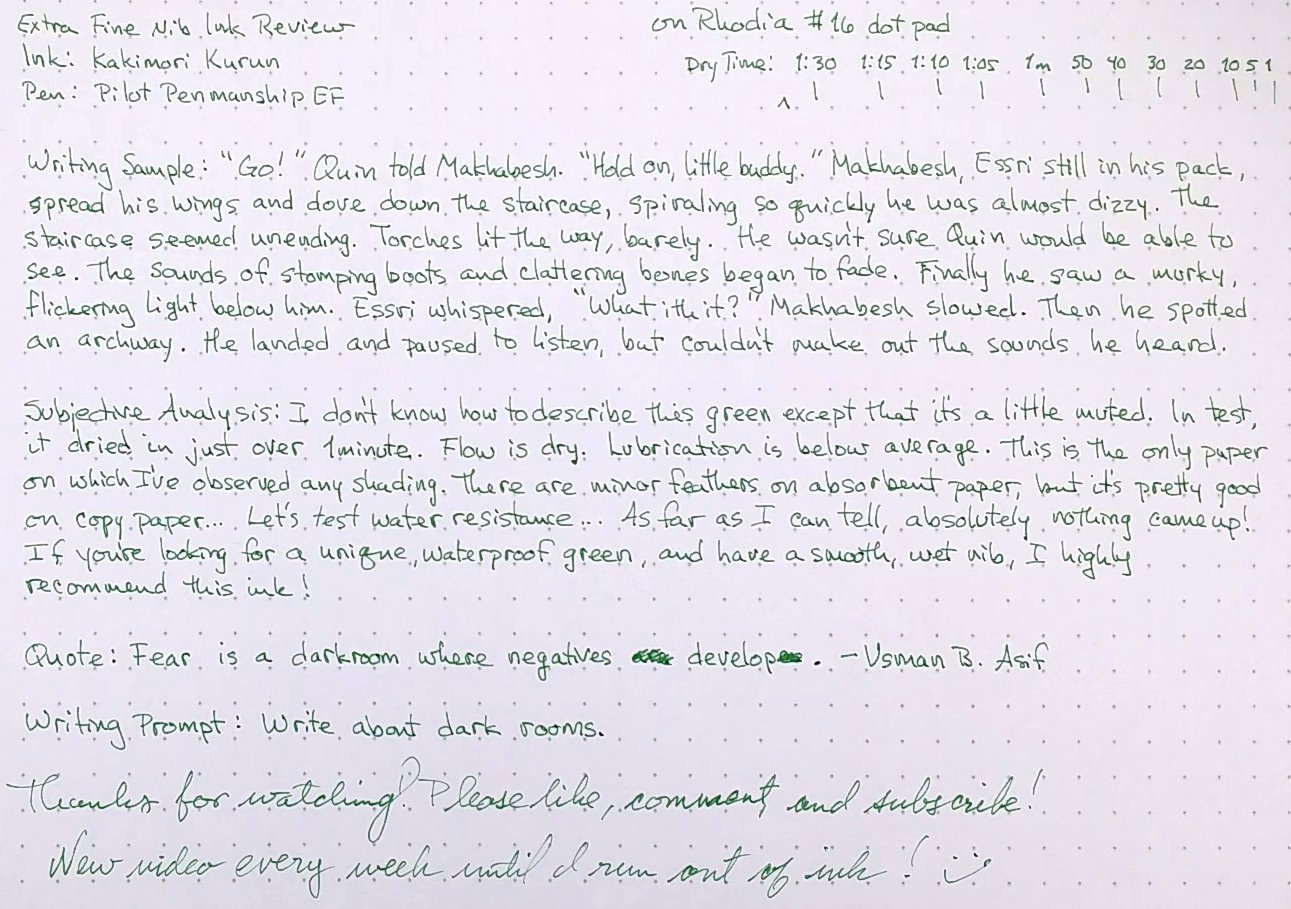 Extra Fine Nib Ink Review
on Rhodia #16 dot pad
Ink: Kakimori Kurun
Dry Time: 1:30 1:15 1:10 1:05 1m 50 40 30 20 10 5 1
Pen: Pilot Penmanship EF
Writing Sample: "Go!" Quin told Makhabesh. "Hold on, little buddy." Makhabesh, Essri still in his pack,
spread his wings and dove down the staircase, spiraling so quickly he was almost dizzy. The
staircase seemed unending. Torches lit the way, barely. He wasn't sure Quin would be able to
see. The sounds of stomping boots and clattering bones began to fade. Finally he saw a murky,
flickering light below him. Essri whispered, "What ith it?" Makhabesh slowed. Then he spotted
an archway. He landed and paused to listen, but couldn't make out the sounds he heard.
Subjective Analysis: I don't know how to describe this green except that it's a little muted. In test,
it dried in just over 1 minute. Flow is dry. Lubrication is below average. This is the only paper
on which I've observed any shading. There are minor feathers on absorbent paper, but it's pretty good
on copy paper... Let's test water resistance... As far as I can tell, absolutely nothing came up!
If you're looking for a unique, waterproof green, and have a smooth, wet nib, I highly
recommend this ink!
Quote: Fear is a darkroom where negatives develop. - Usman B. Asif
Writing Prompt: Write about dark rooms.
Thanks for watching! Please like, comment, and subscribe!
New video every week until I run out of ink! :)